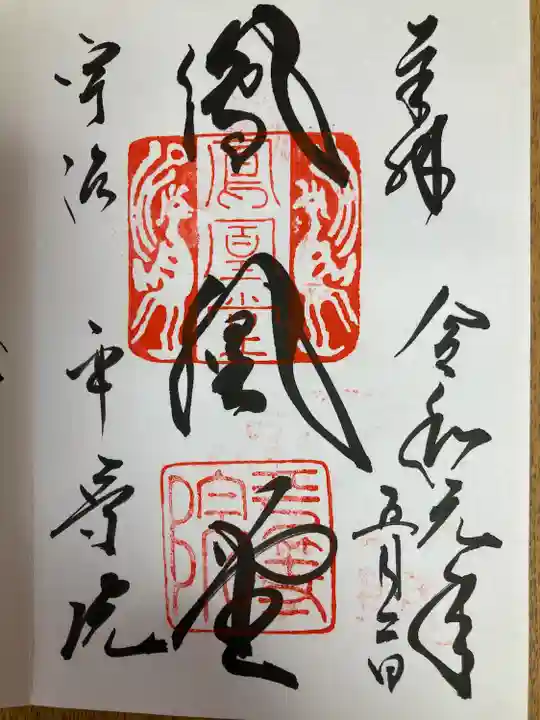 奉拝
令和元年
五月二日
鳳凰堂
鳳凰堂
平等院
宇治 平等院